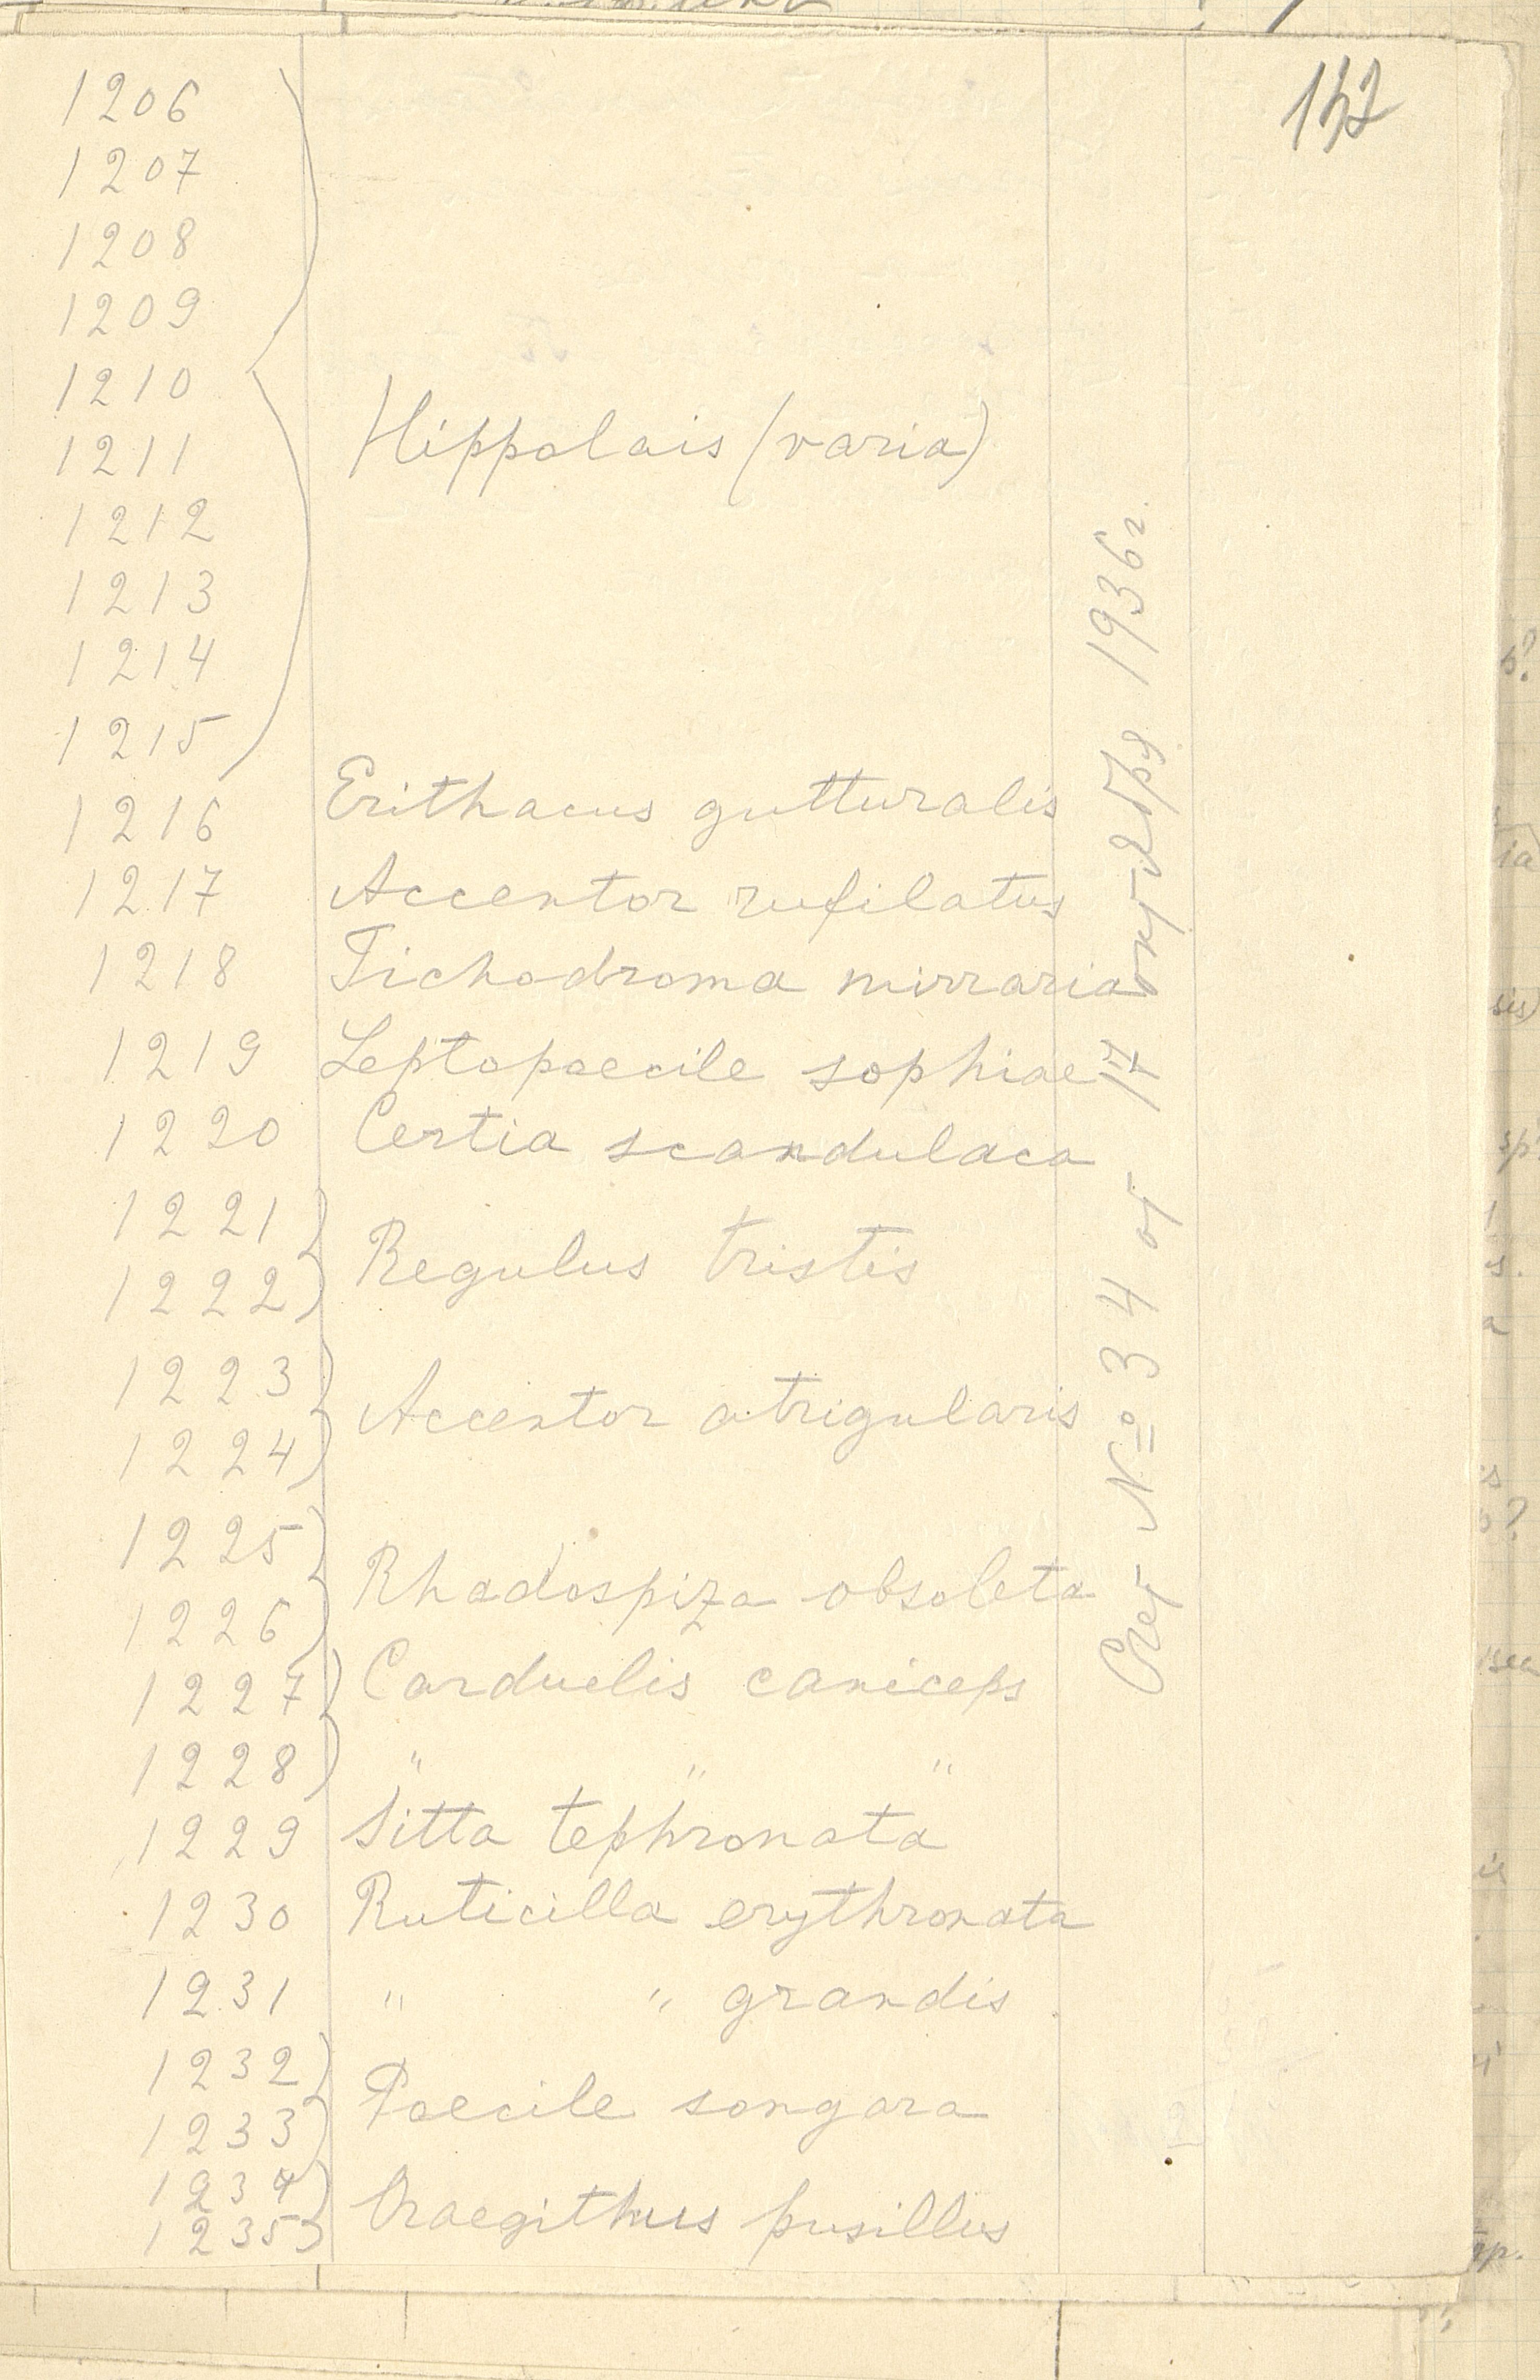 137
1206
1207
1208
1209
1210
1211 Hippolais (varia)
1212
1213
1214
1215
1216 Erithacus gutturalis
1217 Accentor rufilatus
1218 Tichodroma mirraria
1219 Leptopoecile sophiae
1220 Certia scandulaca
1221
1222 Regulus tristis
1223
1224 Accentor atrigularis
1225
1226 Rhodospiza obsoleta
1227 Carduelis caniceps
1228 " " "
1229 Sitta tephronata
1230 Ruticilla erythronata
1231 " " grandis
1232
1233 Poecile songara
1234
1235 Oraegithus pusillus
Счет № 34 от 17 октября 1936 г.